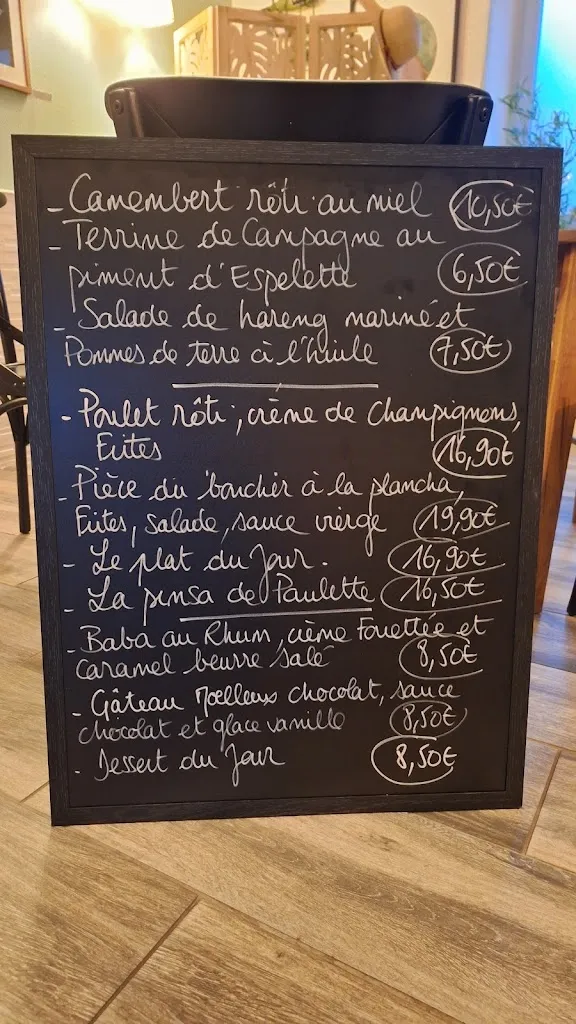 - Camembert rôti au miel 10,50€
- Terrine de Campagne au
piment d'Espelette 6,50€
- Salade de hareng mariné et
Pommes de terre à l'huile 7,50€
- Poulet rôti, crème de Champignons,
Frites 16,90€
- Pièce du boucher à la plancha,
Frites, salade, sauce vierge 19,90€
- Le plat du Jour. 16,90€
- La pinsa de Paulette 16,50€
- Baba au Rhum, crème Fouettée et
caramel beurre salé 8,50€
- Gâteau Moelleux chocolat, sauce
chocolat et glace vanille 8,50€
- Dessert du Jour 8,50€